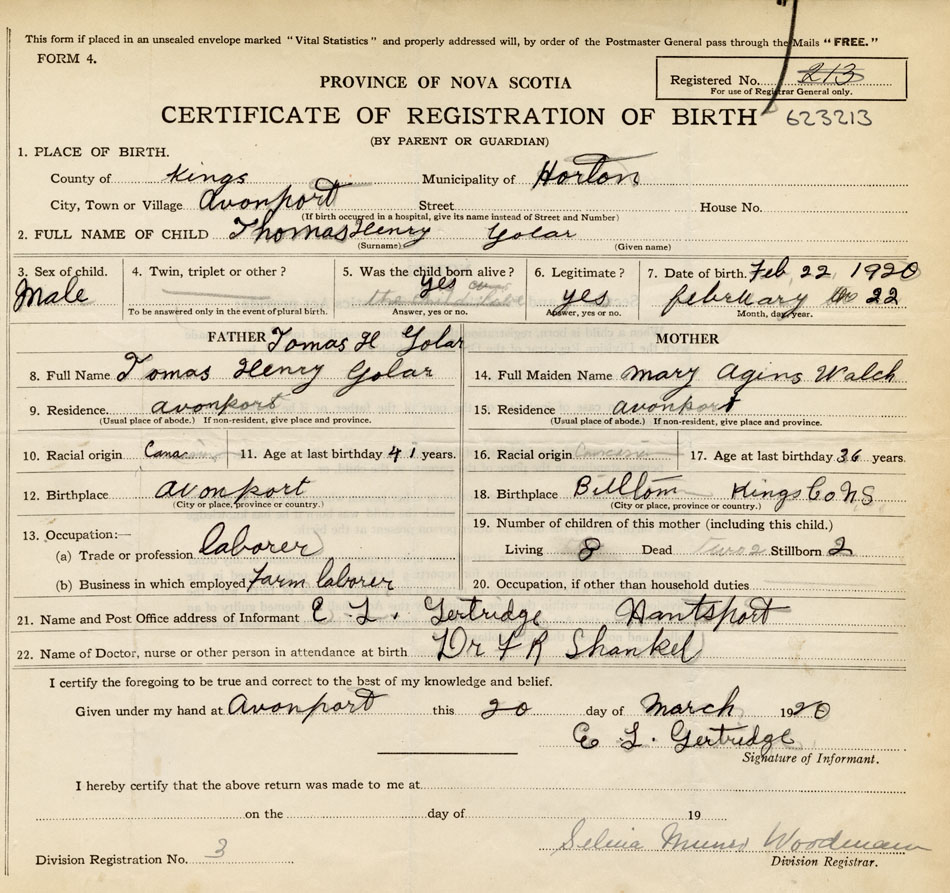 This form if placed in an unsealed envelope marked "Vital Statistics" and properly addressed will, by order of the Postmaster General pass through the Mails "FREE."
FORM 4.
Registered No. 213
For use of Registrar General only.
PROVINCE OF NOVA SCOTIA
CERTIFICATE OF REGISTRATION OF BIRTH 623213
(BY PARENT OR GUARDIAN)
1. PLACE OF BIRTH.
County of Kings Municipality of Horton
City, Town or Village Avonport Street House No.
(If birth occurred in a hospital, give its name instead of Street and Number)
2. FULL NAME OF CHILD Thomas Henry Golar
(Surname) (Given name)
3. Sex of child. 4. Twin, triplet or other? 5. Was the child born alive? 6. Legitimate? 7. Date of birth. Feb 22 1920
Male yes yes february 22
To be answered only in the event of plural birth. Answer, yes or no. Answer, yes or no. Month, day, year.
FATHER Tomas H Golar MOTHER
8. Full Name Tomas Henry Golar 14. Full Maiden Name Mary Agins Walch
9. Residence. avonport 15. Residence avonport
(Usual place of abode.) If non-resident, give place and province. (Usual place of abode.) If non-resident, give place and province.
10. Racial origin 11. Age at last birthday 41 years. 16. Racial origin 17. Age at last birthday 36 years.
12. Birthplace avonport 18. Birthplace Kings Co NS
(City or place, province or country.) (City or place, province or country.)
13. Occupation:— 19. Number of children of this mother (including this child.)
(a) Trade or profession laborer Living 8 Dead Stillborn 2
(b) Business in which employed Farm laborer 20. Occupation, if other than household duties
21. Name and Post Office address of Informant E. L. Gertridge Hantsport
22. Name of Doctor, nurse or other person in attendance at birth Dr F R Shankel
I certify the foregoing to be true and correct to the best of my knowledge and belief.
Given under my hand at Avonport this 20 day of March 1920
E L. Gertridge
Signature of Informant.
I hereby certify that the above return was made to me at
on the day of 19
Woodman
Division Registration No. 3 Division Registrar.